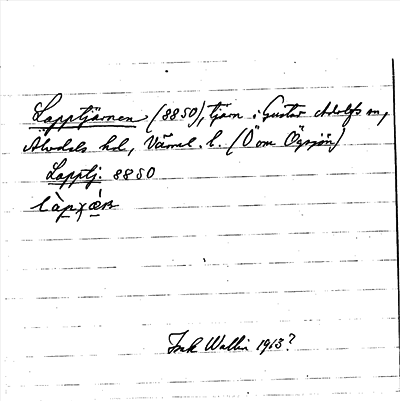 Lapptjärnen (8850), tjärn i Gustav Adolfs sn,
Älvdals hd, Värml. l. (Ö om Örsjön)
Lapptj. 8850
làpχæ̀n
Isak Wallin 1913?